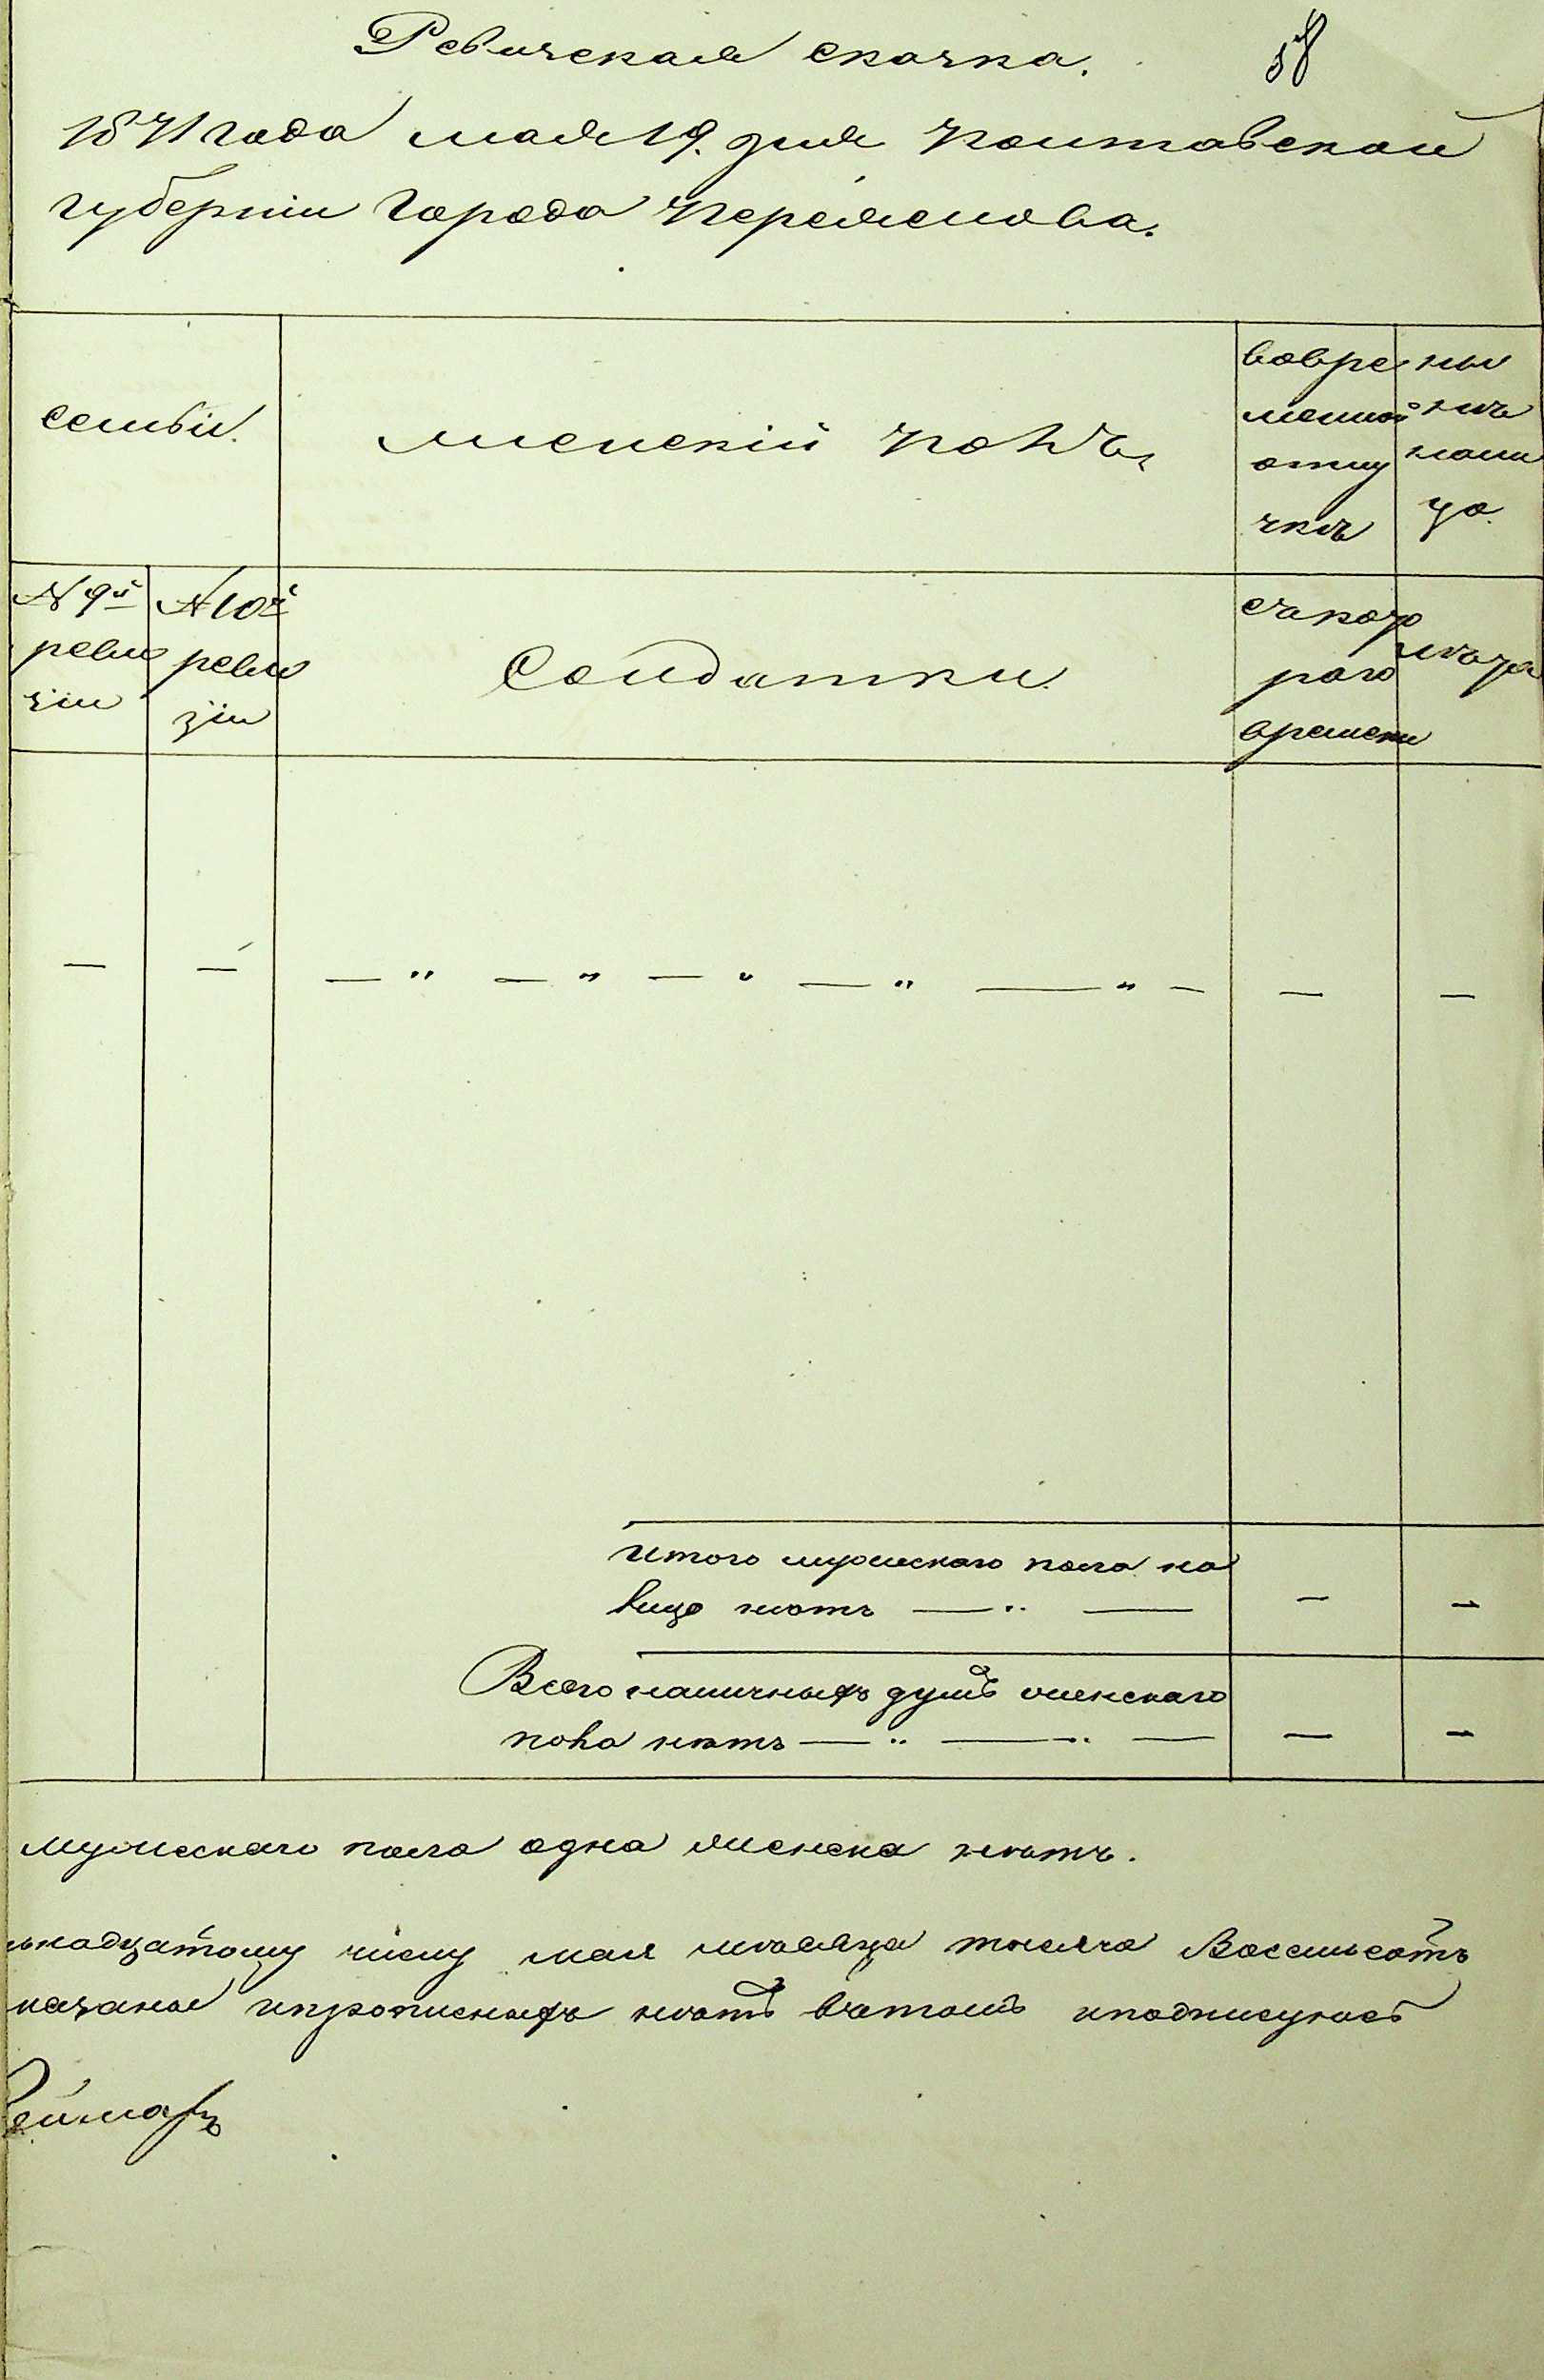 Ревичская скаска.
58
1871 года мая 19. дня Полтавской
губерніи Города Переяслова.
семьи.
женскій полъ,
вовре
менной
отлу
чкѣ
ны
нѣ
нали
цо.
N 9й
реви
зіи
N 10й
реви
зіи
Солдатки.
съкото
раго
времени
лѣта
— — — " — " — " — " — " — — —
Итого мужескаго пола на
лицо нѣтъ — " — — —
Всего наличныхъ душъ женскаго
пола нѣтъ — " — " — — —
мужескаго пола одна женска нѣтъ.
надцатому числу мая мѣсяца тысяча Восемьсотъ
казаны ипрописныхъ нѣтъ вчемъ иподписуюсь